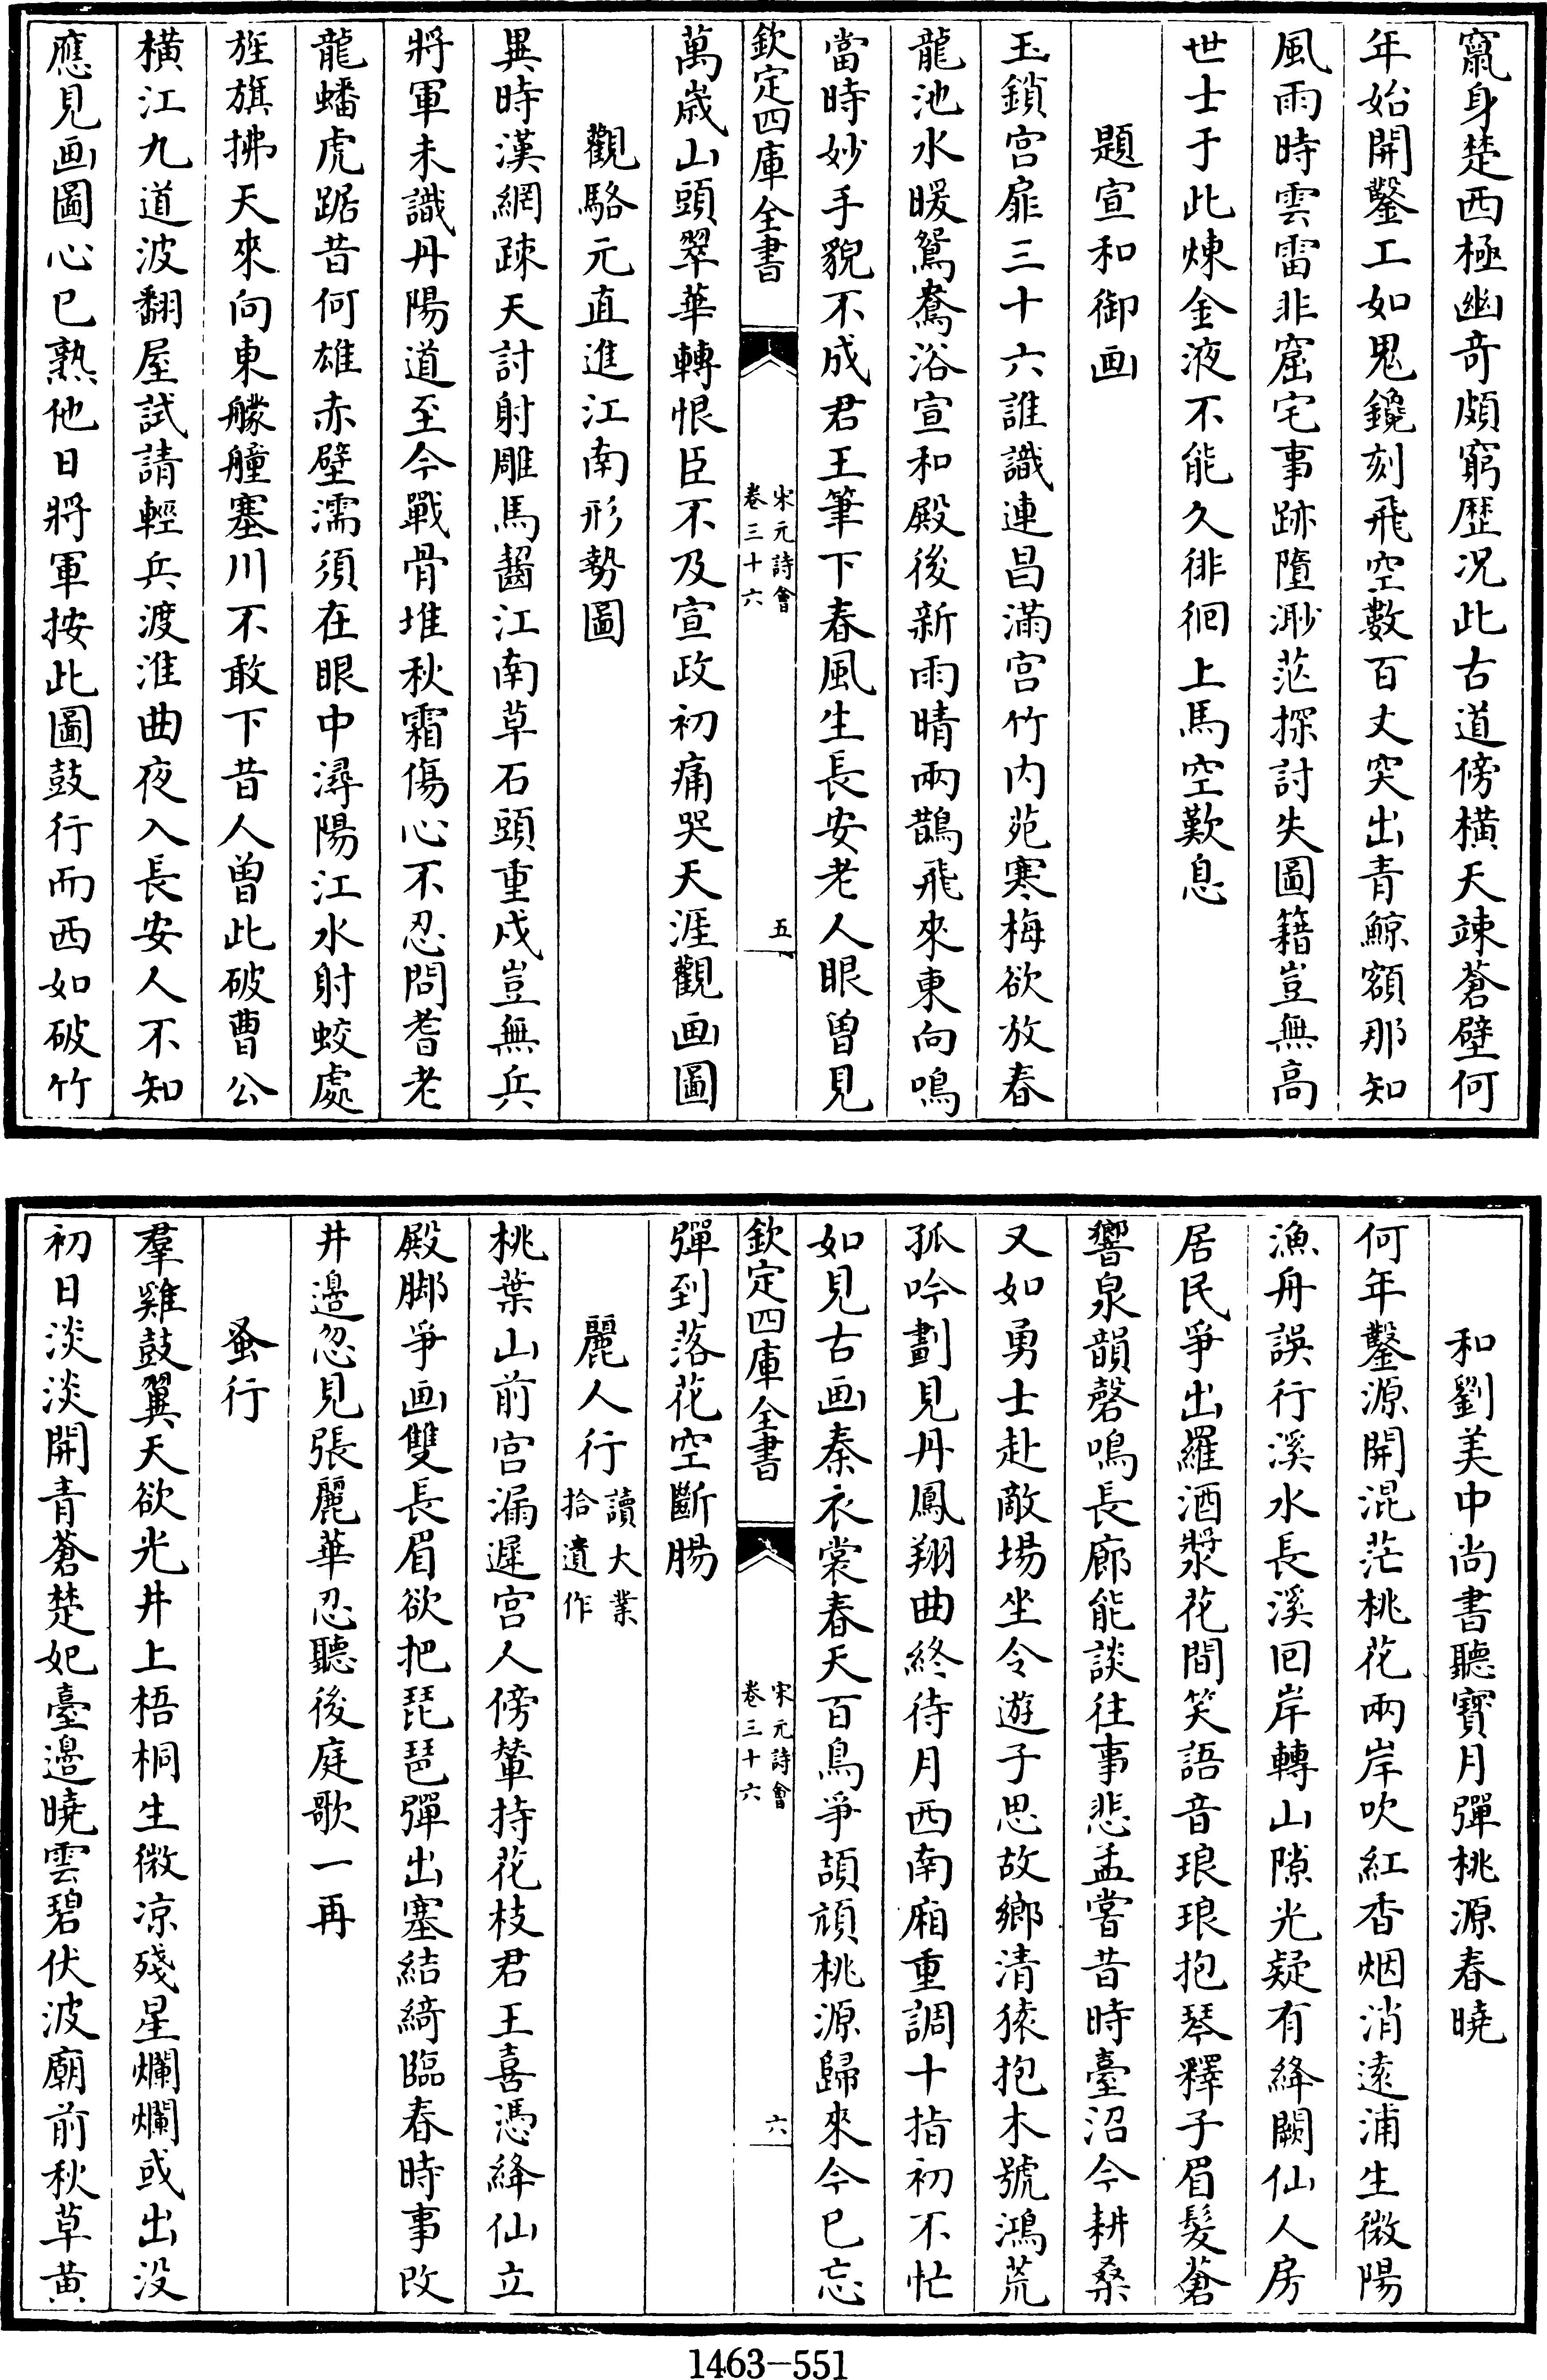 竄身楚西極幽奇頗窮歴况此古道傍横天竦蒼壁何
年始開鑿工如鬼鑱刻飛空數百丈突出青鯨額那知
風雨時雲雷非窟宅事跡墮渺茫探討失圖籍豈無高
世士于此煉金液不能久徘徊上馬空歎息
題宣和御画
玉鎖宫扉三十六誰識連昌滿宫竹内苑寒梅欲放春
龍池水暖鴛鴦浴宣和殿後新雨晴兩鵲飛來東向鳴
當時妙手貌不成君王筆下春風生長安老人眼曽見
欽定四庫全書
宋元詩會
卷三十六
五
萬歲山頭翠華轉恨臣不及宣政初痛哭天涯觀画圖
觀駱元直進江南形勢圖
異時漢網疎天討射雕馬齧江南草石頭重戍豈無兵
將軍未識丹陽道至今戰骨堆秋霜傷心不忍問耆老
龍蟠虎踞昔何雄赤壁濡須在眼中潯陽江水射蛟處
旌旗拂天來向東艨艟塞川不敢下昔人曽此破曹公
横江九道波翻屋試請輕兵渡淮曲夜入長安人不知
應見画圖心已熟他日將軍按此圖鼓行而西如破竹
和劉美中尚書聽寳月彈桃源春曉
何年鑿源開混茫桃花兩岸吹紅香烟消逺浦生微陽
漁舟誤行溪水長溪回岸轉山隙光疑有絳闕仙人房
居民爭出羅酒漿花間笑語音琅琅抱琴釋子眉髮蒼
響泉韻磬鳴長廊能談往事悲孟嘗昔時臺沼今耕桑
又如勇士赴敵塲坐令遊子思故鄉清猿抱木號鴻荒
孤吟劃見丹鳳翔曲終待月西南廂重調十指初不忙
如見古画秦衣裳春天百鳥爭頡頏桃源歸來今已忘
欽定四庫全書
宋元詩會
卷三十六
六
彈到落花空斷腸
麗人行讀大業
拾遺作
桃葉山前宫漏遲宫人傍輦持花枝君王喜憑絳仙立
殿脚爭画雙長眉欲把琵琶彈出塞結綺臨春時事改
井邉忽見張麗華忍聽後庭歌一再
蚤行
羣雞鼓翼天欲光井上梧桐生微凉殘星爛爛或出没
初日淡淡開青蒼楚妃臺邉曉雲碧伏波廟前秋草黄
1463-551